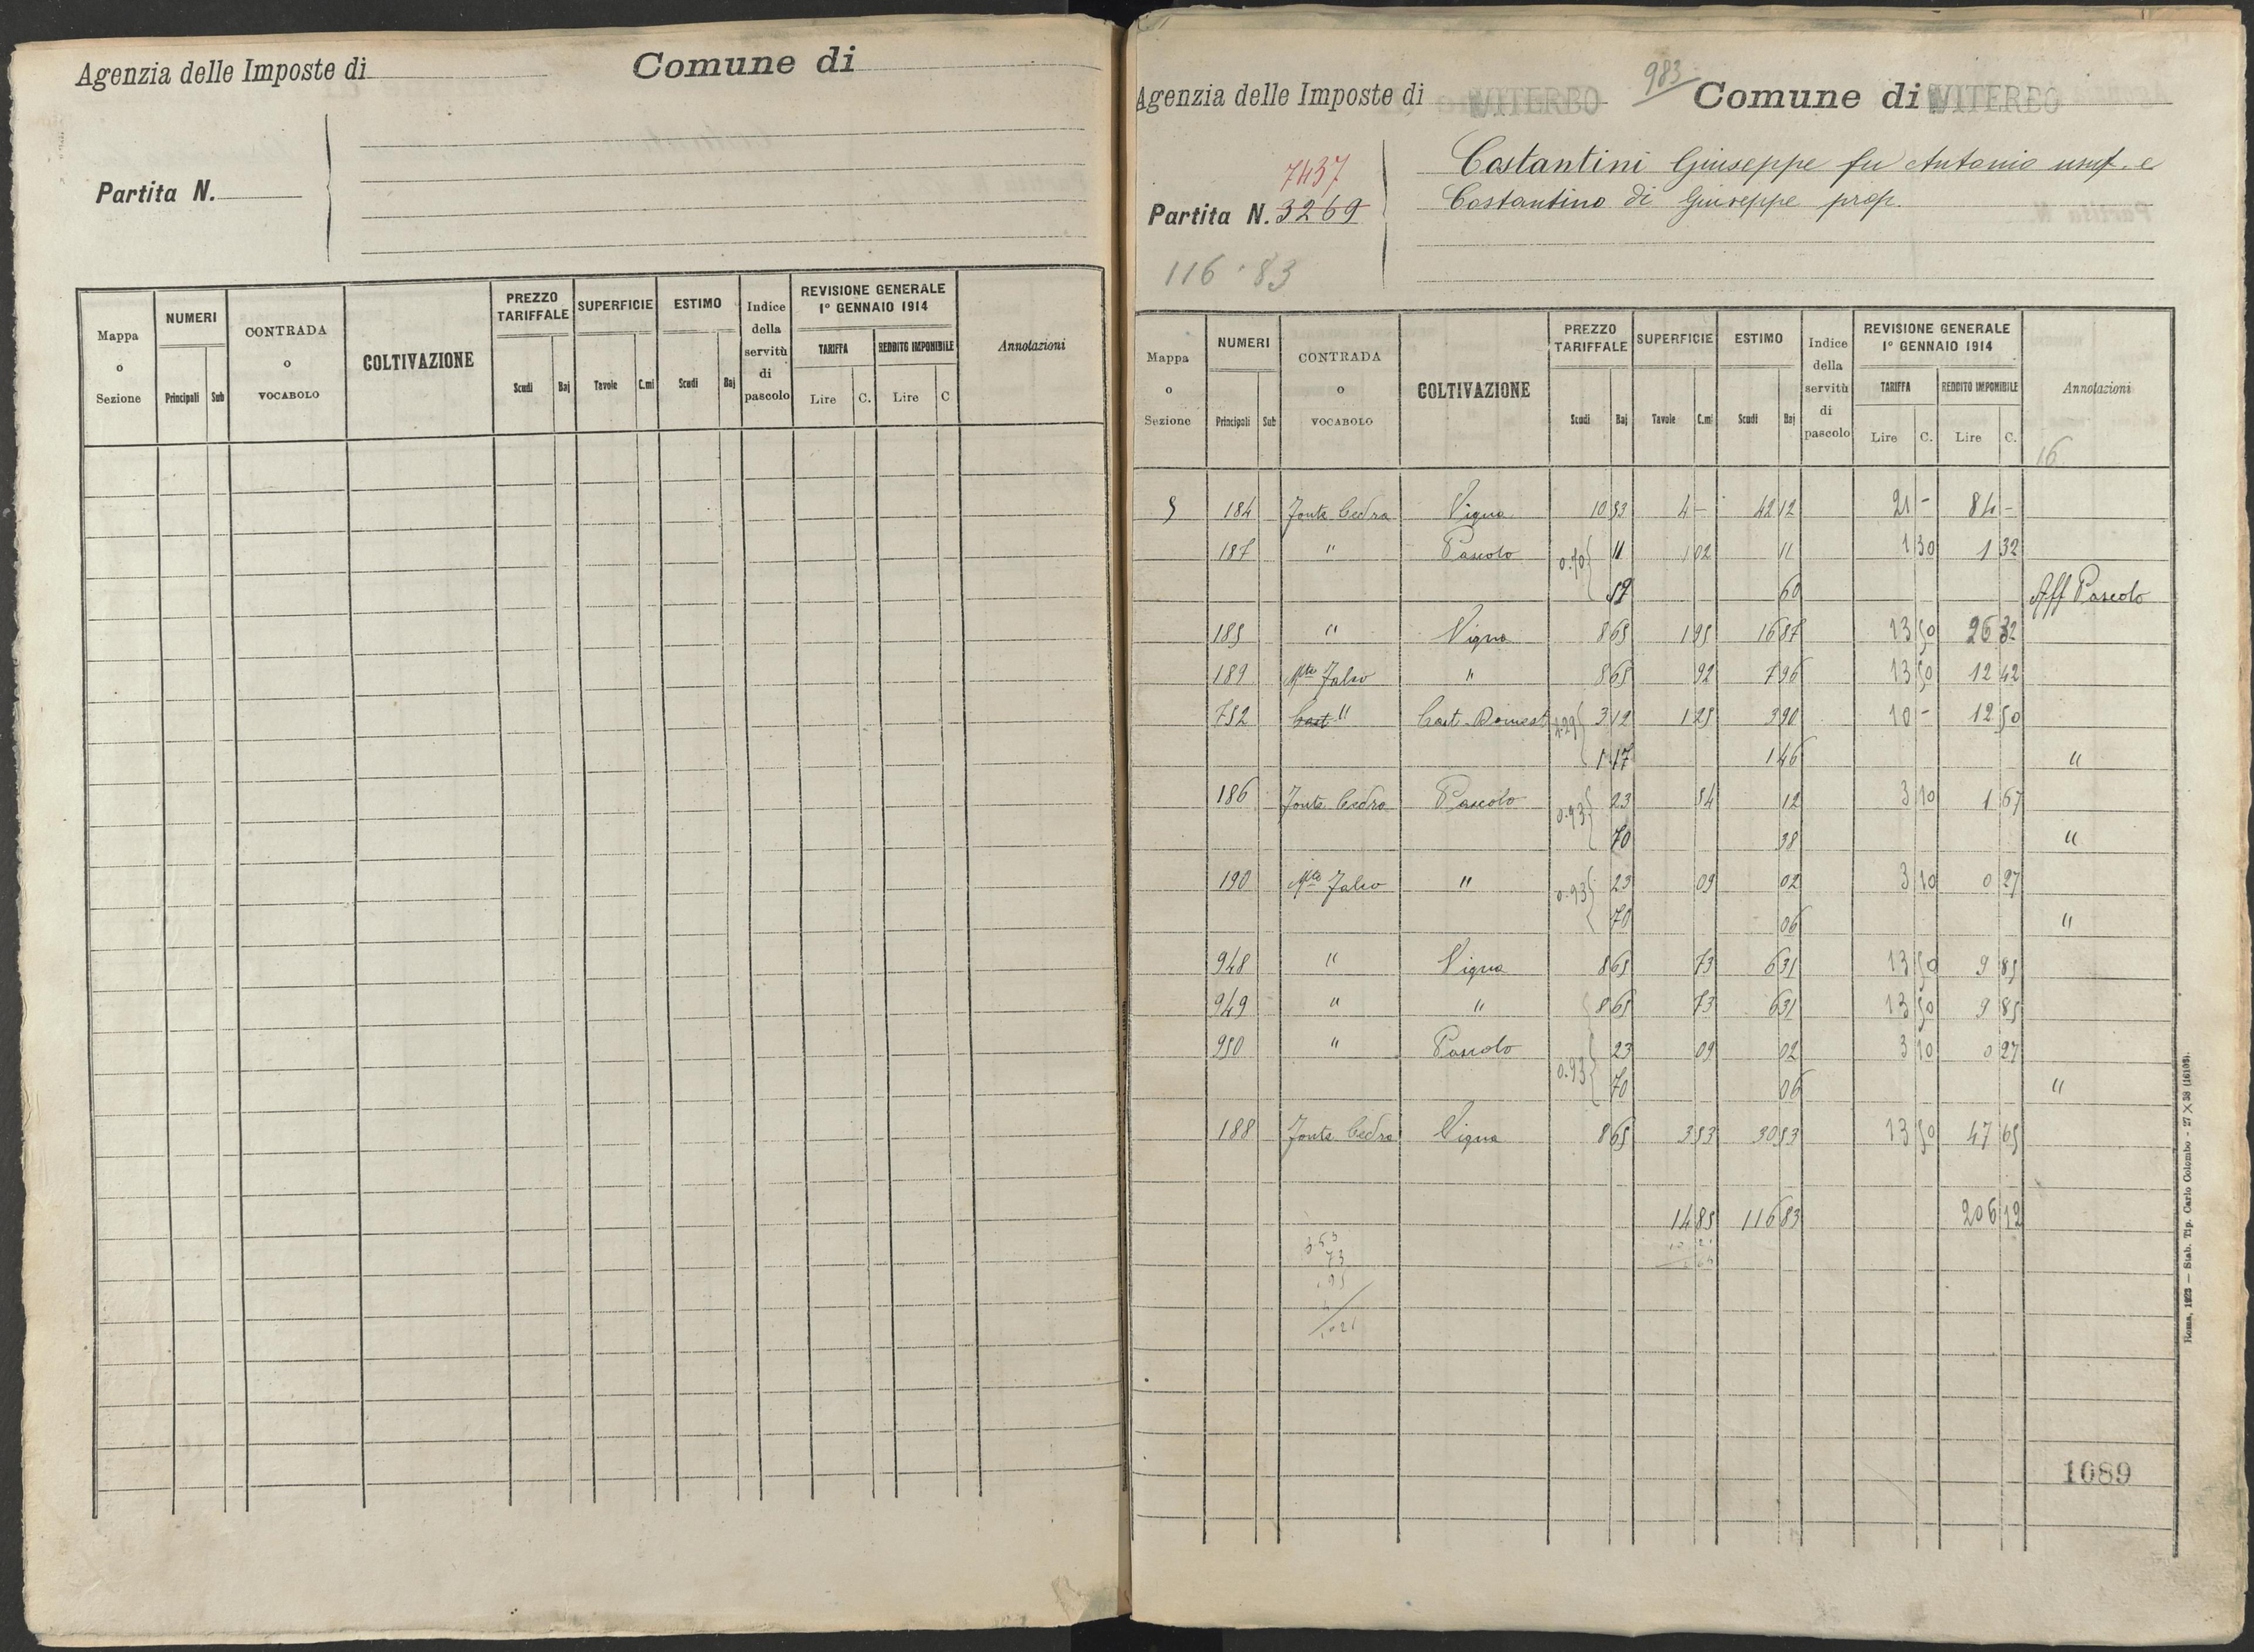 Agenzia delle Imposte di
Comune di
Partita N.
Mappa o Sezione
NUMERI
Principali Sub
CONTRADA o VOCABOLO
COLTIVAZIONE
PREZZO TARIFFALE
Scudi Baj
SUPERFICIE
Tavole C.mi
ESTIMO
Scudi Baj
Indice della servitù di pascolo
REVISIONE GENERALE 1º GENNAIO 1914
TARIFFA
Lire C.
REDDITO IMPONIBILE
Lire C
Annotazioni
983
Agenzia delle Imposte di VITERBO
Comune di VITERBO
7437
Partita N. 3269
116.83
Costantini Giuseppe fu Antonio usuf. e
Costantino di Giuseppe prop.
Mappa o Sezione
NUMERI
Principali Sub
CONTRADA o VOCABOLO
COLTIVAZIONE
PREZZO TARIFFALE
Scudi Baj
SUPERFICIE
Tavole C.mi
ESTIMO
Scudi Baj
Indice della servitù di pascolo
REVISIONE GENERALE 1º GENNAIO 1914
TARIFFA
Lire C.
REDDITO IMPONIBILE
Lire C.
Annotazioni
16
5 184 Fonte Cedro Vigna 10 53 4 - 42 12 21 - 84 -
187 " Pascolo 0.70 11 1 02 11 1 30 1 32
59 60 Aff Pascolo
185 " Vigna 8 65 1 95 16 87 13 50 26 32
189 Mte Falco " 8 65 92 7 96 13 50 12 42
752 Cast " Cast. Domest 4.29 3 12 1 25 3 90 10 - 12 50
1 17 1 46 "
186 Fonte Cedro Pascolo 0.93 23 54 12 3 10 1 67
70 38 "
190 Mte Falco " 0.93 23 09 02 3 10 0 27
70 06 "
948 " Vigna 8 65 73 6 31 13 50 9 85
949 " " 8 65 73 6 31 13 50 9 85
950 " Pascolo 0.93 23 09 02 3 10 0 27
70 06 "
188 Fonte Cedro Vigna 8 65 3 53 30 53 13 50 47 65
14 85 116 83 206 12
353
73
1089
Roma, 1923 — Stab. Tip. Carlo Colombo - 27 X 38 (16105).